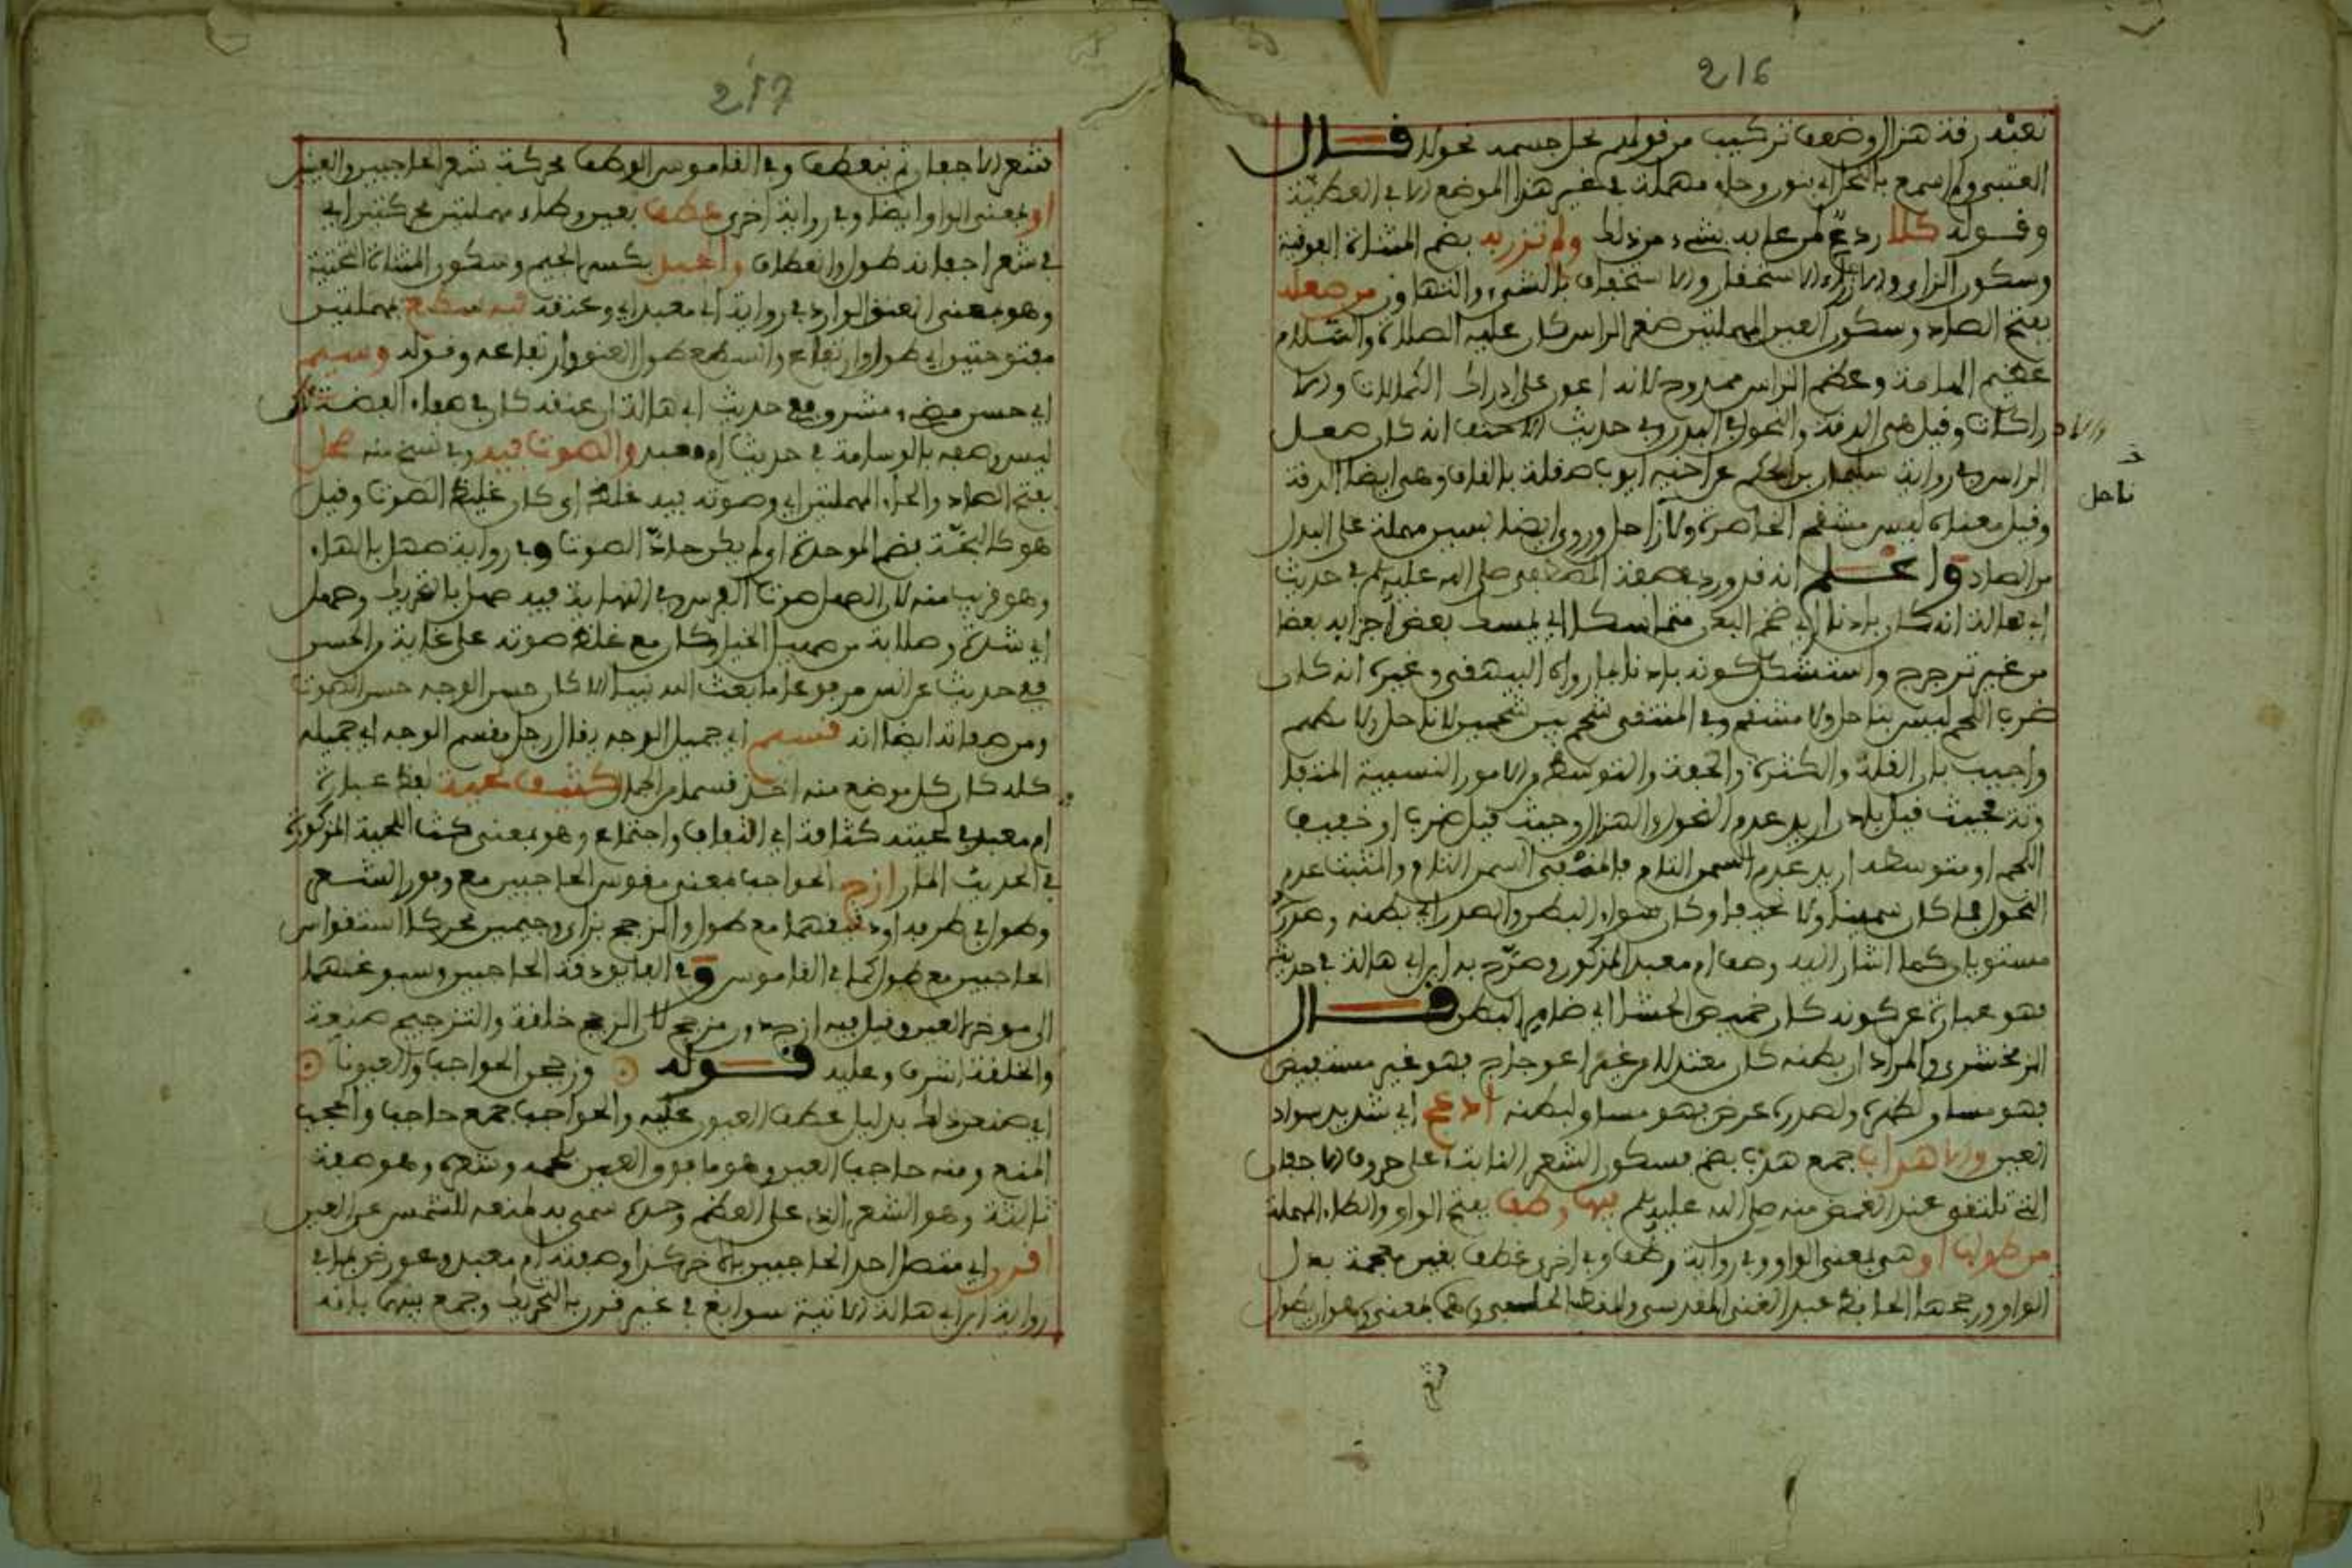 216
نعته رقة هزال وضعف تركيب من قولهم نحل جسمه نحولا قال
العتبي ولم اسمع بالنحل اي بنون وحاء مهملة في غير هذا الموضع الا في العطية
وقوله كلا ردع لمن عابه بشيء من ذلك ولم تزر به بضم المثناة الفوقية
وسكون الزاي والازراء الاستحقار والاستخفاف بالشيء والتهاون به صعلة
بفتح الصاد وسكون العين المهملتين صغر الراس كان عليه الصلاة والسلام
عظيم الهامة وعظم الراس ممدوح لانه اعون على ادراك الكمالات والا
دراكات وقيل هي الدقة والنحول في البدن وفي حديث الاحنف انه كان صعل
الراس وفي رواية سليمان بن الحكم عن اخيه ايوب صقلة بالقاف وهي ايضا الدقة
وقيل معناه ليس منتفخ الخاصرة ولا ناحل وروي ايضا بسين مهملة على البدل
ناحل
من الصاد واعلم انه قد ورد في صفة المصطفى صلى الله عليه وسلم في حديث
ابي هالة انه كان بادنا اي ضخم البدن متماسكا اي يمسك بعض اجزايه بعضا
من غير ترجرج واستشكل كونه بادنا بما رواه البيهقي وغيره انه كان
ضرب اللحم ليس بناحل ولا منتفخ وفي المنتقى شحم بين شحمين لا ناحل ولا مطهم
واجيب بان القلة والكثرة والخفة والتوسط من الامور النسبية المتقا
وتة فحيث قيل بادن اريد عدم النحول والهزال وحيث قيل ضرب او خفيف
اللحم او متوسطه اريد عدم السمن التام فالمنفي السمن التام والمثبت عدم
النحول فما كان سمينا ولا نحيفا وكان سواء البطن والصدر اي بطنه وصدره
مستويان كما اشار اليه وصف ام معبد المذكور وصرح به ابن ابي هالة في حديثه
فهو عبارة عن كونه كان خميص الحشا اي ضامر البطن قال
الزمخشري والمراد ان بطنه كان معتدلا من غير اعوجاج فهو غير مستفيض
فهو مساو لظهره ولصدره عرض فهو مساو لبطنه ادعج اي شديد سواد
العين والاهداب جمع هدب بضم فسكون الشعر النابت على حروف الاجفان
التي تلتقي عند الغمض منه صلى الله عليه وسلم فيها وطف بفتح الواو والطاء المهملة
من طولها او هي بمعنى الواو وفي رواية وطف وفي اخرى غطف بغين معجمة بدل
الواو ورجحها الحافظ عبد الغني المقدسي والقطب الحلبي وهما بمعنى وهو ان يطول
217
شعر الاجفان ثم ينعطف وفي القاموس الوطف محركة شعر الحاجبين والعينين
او بمعنى الواو ايضا وفي رواية اخرى عطف بعين وطاء مهملتين محركتين اي
في شعر اجفانه طول وانعطاف والجيد بكسر الجيم وسكون المثناة التحتية
وهو بمعنى العنق الوارد في رواية ام معبد اي وعنقه فيه سطع بمهملتين
مفتوحتين اي طول وارتفاع والسطع طول العنق وارتفاعه وقوله وسيم
اي حسن وضيء مشرق وفي حديث ابي هالة ان عنقه كان في صفاء الفضة
ليس وصفه بالوسامة في حديث ام معبد والصوت فيه وفي نسخ منه صحل
بفتح الصاد والحاء المهملتين اي وصوته فيه غلظ اي كان غليظ الصوت وقيل
هو كالبحة بضم الموحدة اي لم يكن حاد الصوت وفي رواية صهل بالهاء
وهو قريب منه لان الصهل صوت الفرس وفي النهاية فيه صهل بالتحريك وصهل
اي شدة وصلابة من صهيل الخيل وكان مع غلظ صوته على غاية من الحسن
ففي حديث عن انس مرفوعا ما بعث الله نبيا الا كان حسن الوجه حسن الصوت
ومن صفاته ايضا انه قسيم اي جميل الوجه يقال رجل مقسم الوجه اي جميله
كله كان كل موضع منه اخذ قسما من الجمال كثيف لحية لفظ عبارة
ام معبد في لحيته كثافة اي التفاف واجتماع وهو بمعنى كث اللحية المذكورة
في الحديث المار ازج الحواجب بمعنى مقوس الحاجبين مع وفور الشعر
وطول في طرفه او دقيقهما مع طول والزجج بزاي وجيمين محركا استقواس
الحاجبين مع طول كما في القاموس وفي الفايق دقة الحاجبين وسبوغهما
الى موخر العين وقيل فيه ازج دون مزجج لان الزجج خلقة والتزجيج صنعة
والخلقة اشرف وعليه قوله وزججن الحواجب والعيونا
اي صنعن ذلك بدليل عطف العيون عليه والحواجب جمع حاجب والحجب
المنع ومنه حاجب العين وهو ما فوق العين بلحمه وشعره وهو صفة
ثابتة وهو الشعر الذي على العظم وحده سمي به لمنعه للشمس عن العين
اقرن اي متصل احد الحاجبين بالاخر كذا وصفته ام معبد وعورض بما في
رواية ابن ابي هالة الاتية سوابغ في غير قرن بالتحريك وجمع بينهما بانه